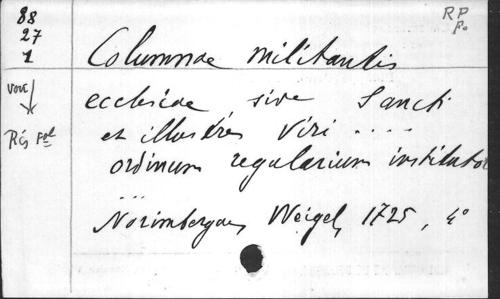 88
27
1
RP
Fo
Columnae militantis
voir
ecclesiae, sive Sancti
Rés Fol
et illustres Viri ....
ordinum regularium institutor
...
Norimbergae, Weigel, 1725, 4°